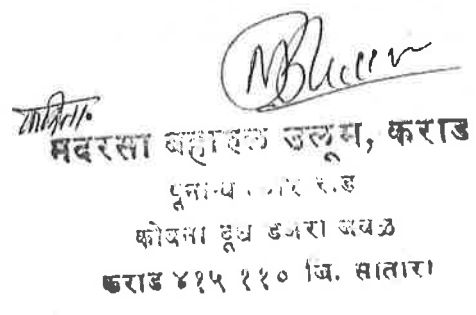 करिता.
मदरसा बहारुल उलूम, कराड
पूना रोड
कोयना दूध डेअरी जवळ
कराड ४१५ ११० जि. सातारा